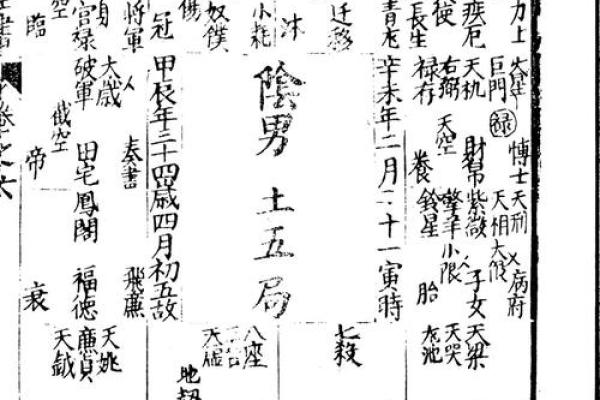 力士
博士
天刑
病府
巨門禄
天相
大限
疾厄
天机
財帛
紫微
子女
天梁
右弼
天空
擎羊
小限
天哭
長生
禄存
養
鈴星
胎
龙池
青龙
辛未年二月二十一寅時
迁移
七殺
沐
小耗
陰男 土五局
八座
奴僕
天虛
地劫
冠
甲辰年三十四歲四月初五故
將軍
奏書
飛廉
大歲
天姚
宮禄
破軍
田宅
鳳閣
福德
廉貞
截空
天鉞
臨
帝
衰